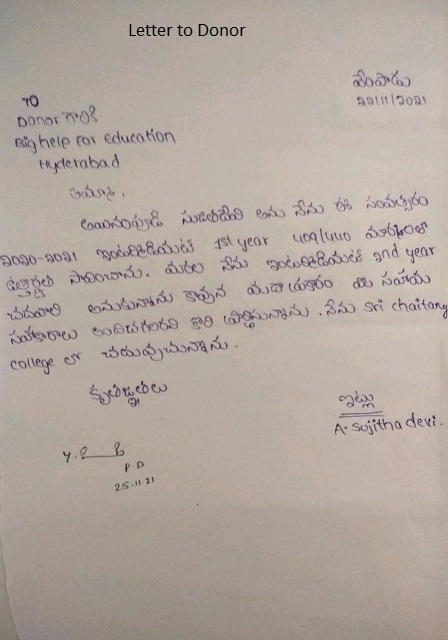 Letter to Donor
వేంపాడు
22/11/2021
TO
Donor గారికి
Big help for education
Hyderabad
అయ్యా,
సుజితదేవి అను నేను ఈ సంవత్సరం
2020-2021 ఇంటర్మీడియట్ 1st year 409/440 మార్కులతో
ఉత్తీర్ణత సాధించాను. మరల నేను ఇంటర్మీడియట్ 2nd year
చదవాలి అనుకుంటున్నాను కావున మీ సహాయ
సహకారాలు అందించగలరని కోరి ప్రార్థిస్తున్నాను. నేను Sri chaitanya
college లో చదువుచున్నాను.
కృతజ్ఞతలు
ఇట్లు
A. Sujitha devi.
P.D
25.11.21